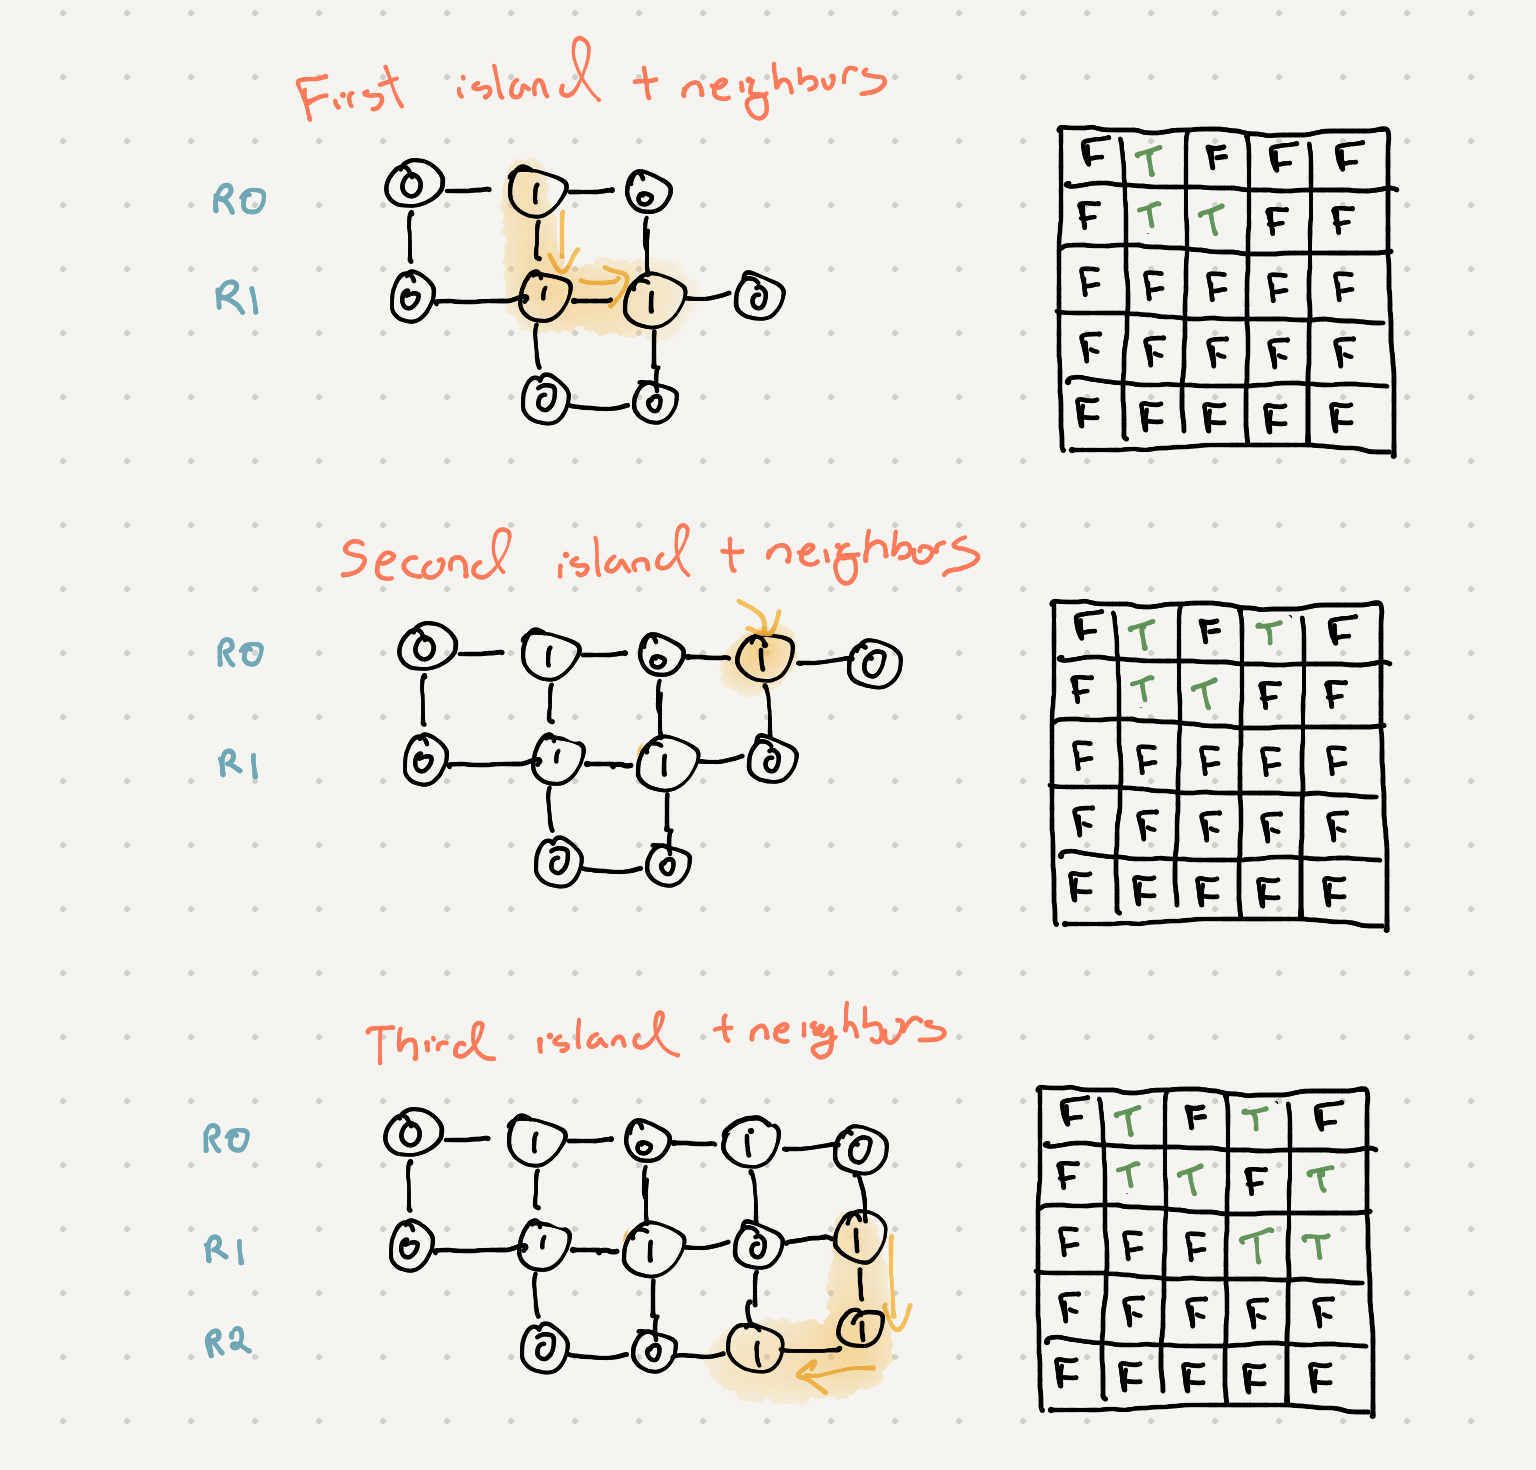 First island + neighbors
R0 0 1 0
R1 0 1 1 0
0 0
F T F F F
F T T F F
F F F F F
F F F F F
F F F F F
Second island + neighbors
R0 0 1 0 1 0
R1 0 1 1 0
0 0
F T F T F
F T T F F
F F F F F
F F F F F
F F F F F
Third island + neighbors
R0 0 1 0 1 0
R1 0 1 1 0 1
R2 0 0 1 1
F T F T F
F T T F T
F F F T T
F F F F F
F F F F F